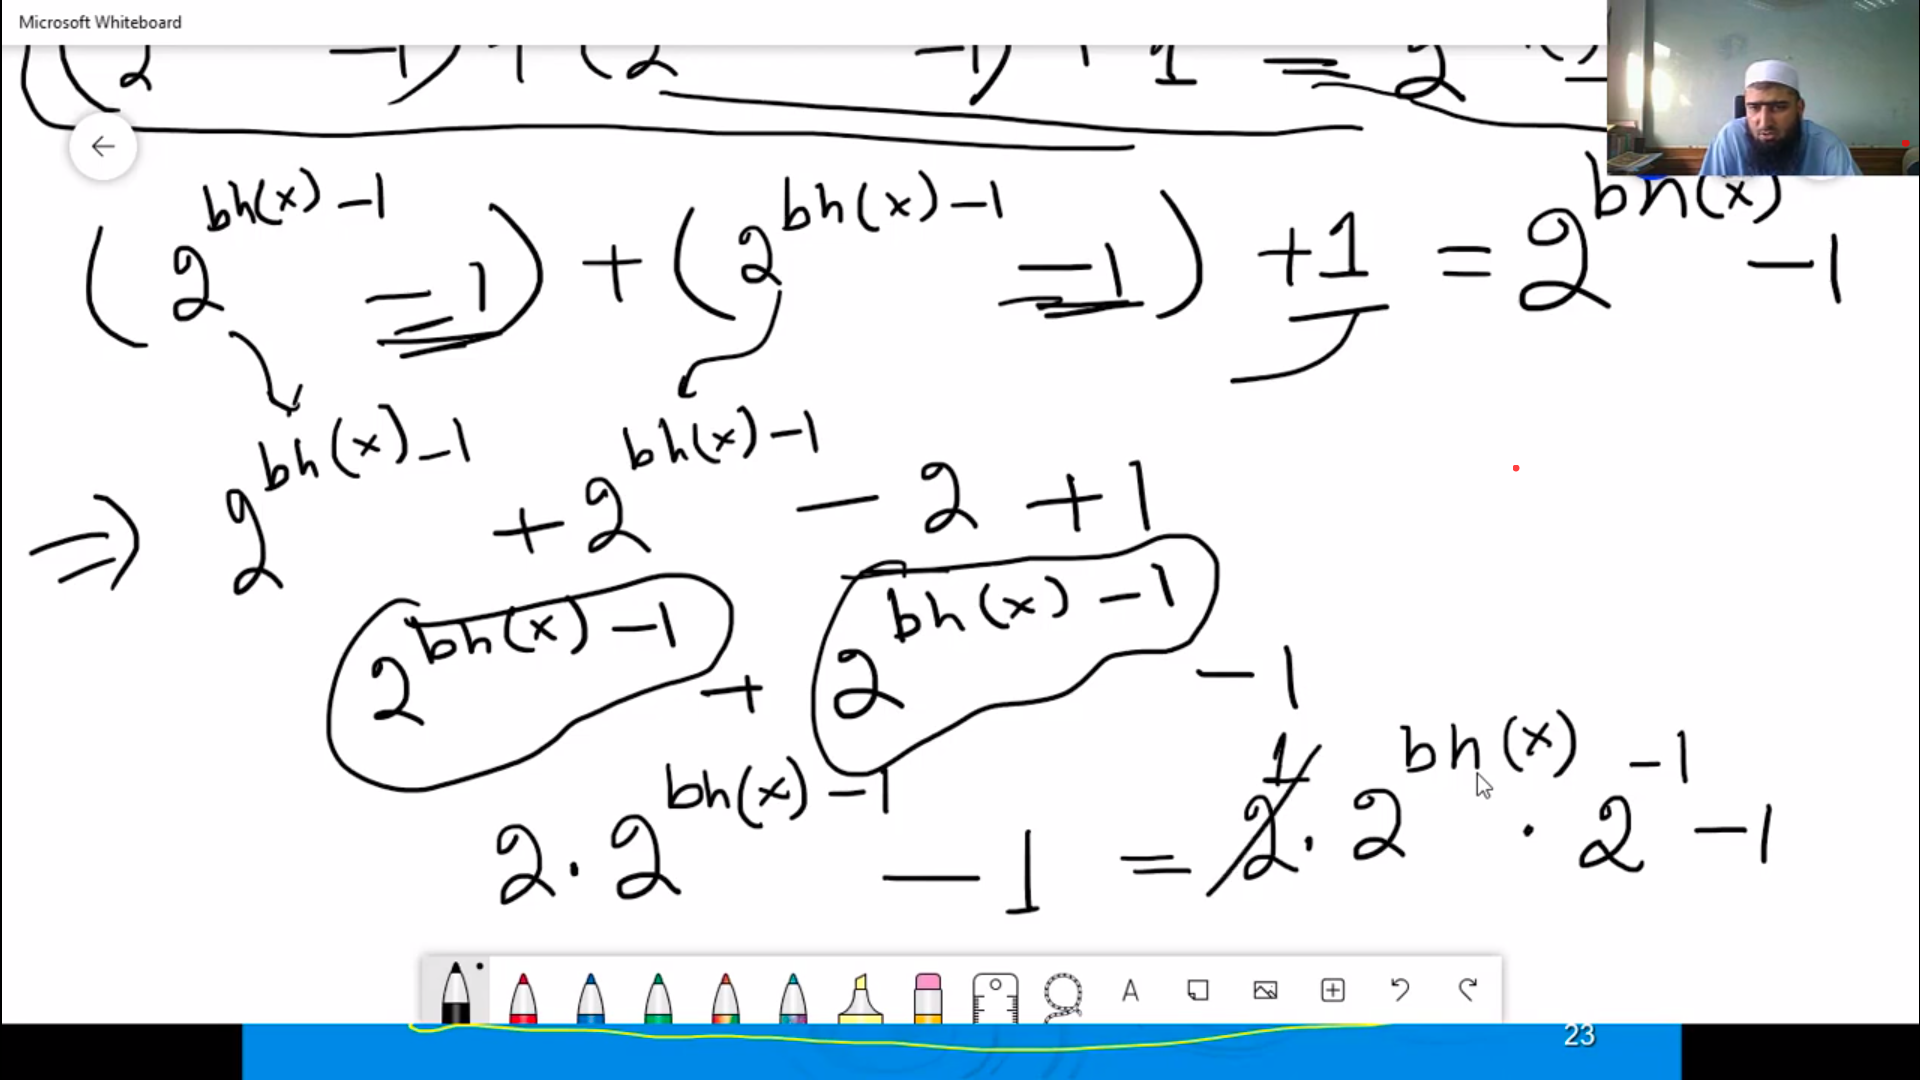 Microsoft Whiteboard
(2 -1) + (2 -1) + 1 = 2
(2^{bh(x)-1} -1) + (2^{bh(x)-1} -1) +1 = 2^{bh(x)} -1
⇒ 2^{bh(x)-1} + 2^{bh(x)-1} - 2 + 1
2^{bh(x)-1} + 2^{bh(x)-1} - 1
2 · 2^{bh(x)-1} - 1 = 2 · 2^{bh(x)} · 2^{-1} - 1
1
A
23